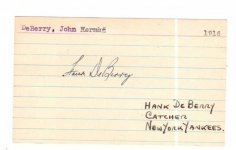 DeBerry, John Herman 1916
Hank DeBerry
HANK DEBERRY
CATCHER
NEW YORK YANKEES.